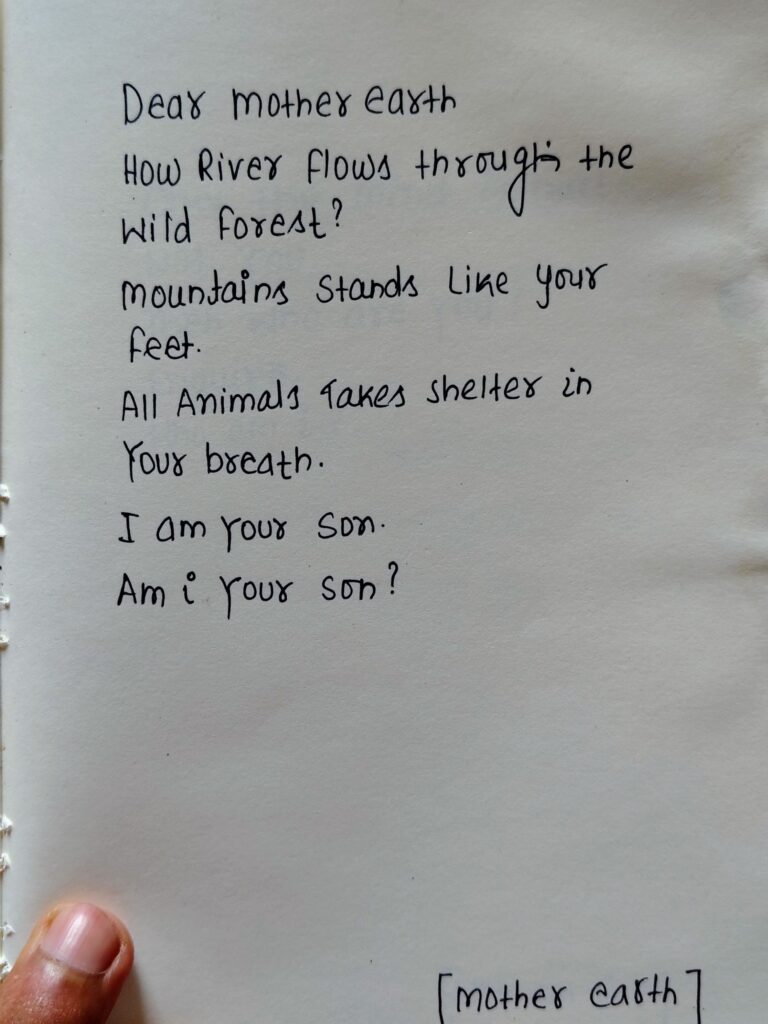 Dear mother earth
How River flows through the
wild forest?
mountains stands Like your
feet.
All Animals Takes shelter in
Your breath.
I am your son.
Am i your son?
[mother earth]